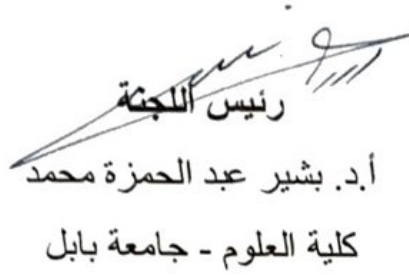 رئيس اللجنة
أ.د. بشير عبد الحمزة محمد
كلية العلوم - جامعة بابل